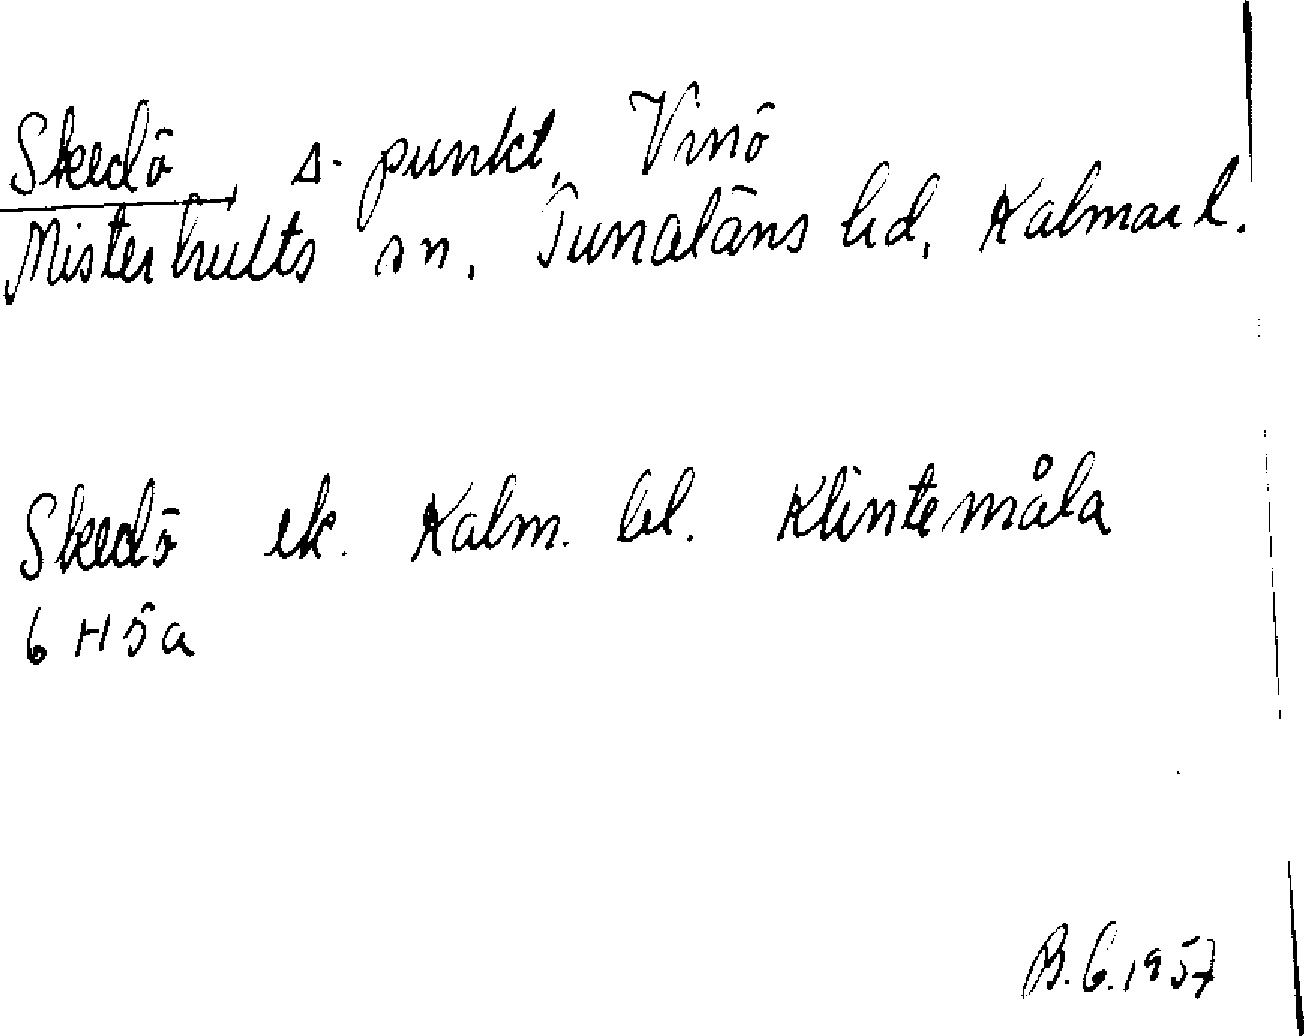 Skedö, Δ-punkt, Vinö
Misterhults sn, Tunaläns hd, Kalmar l.
Skedö ek. Kalm. bl. Klintemåla
6 H 5a
B.G. 1957